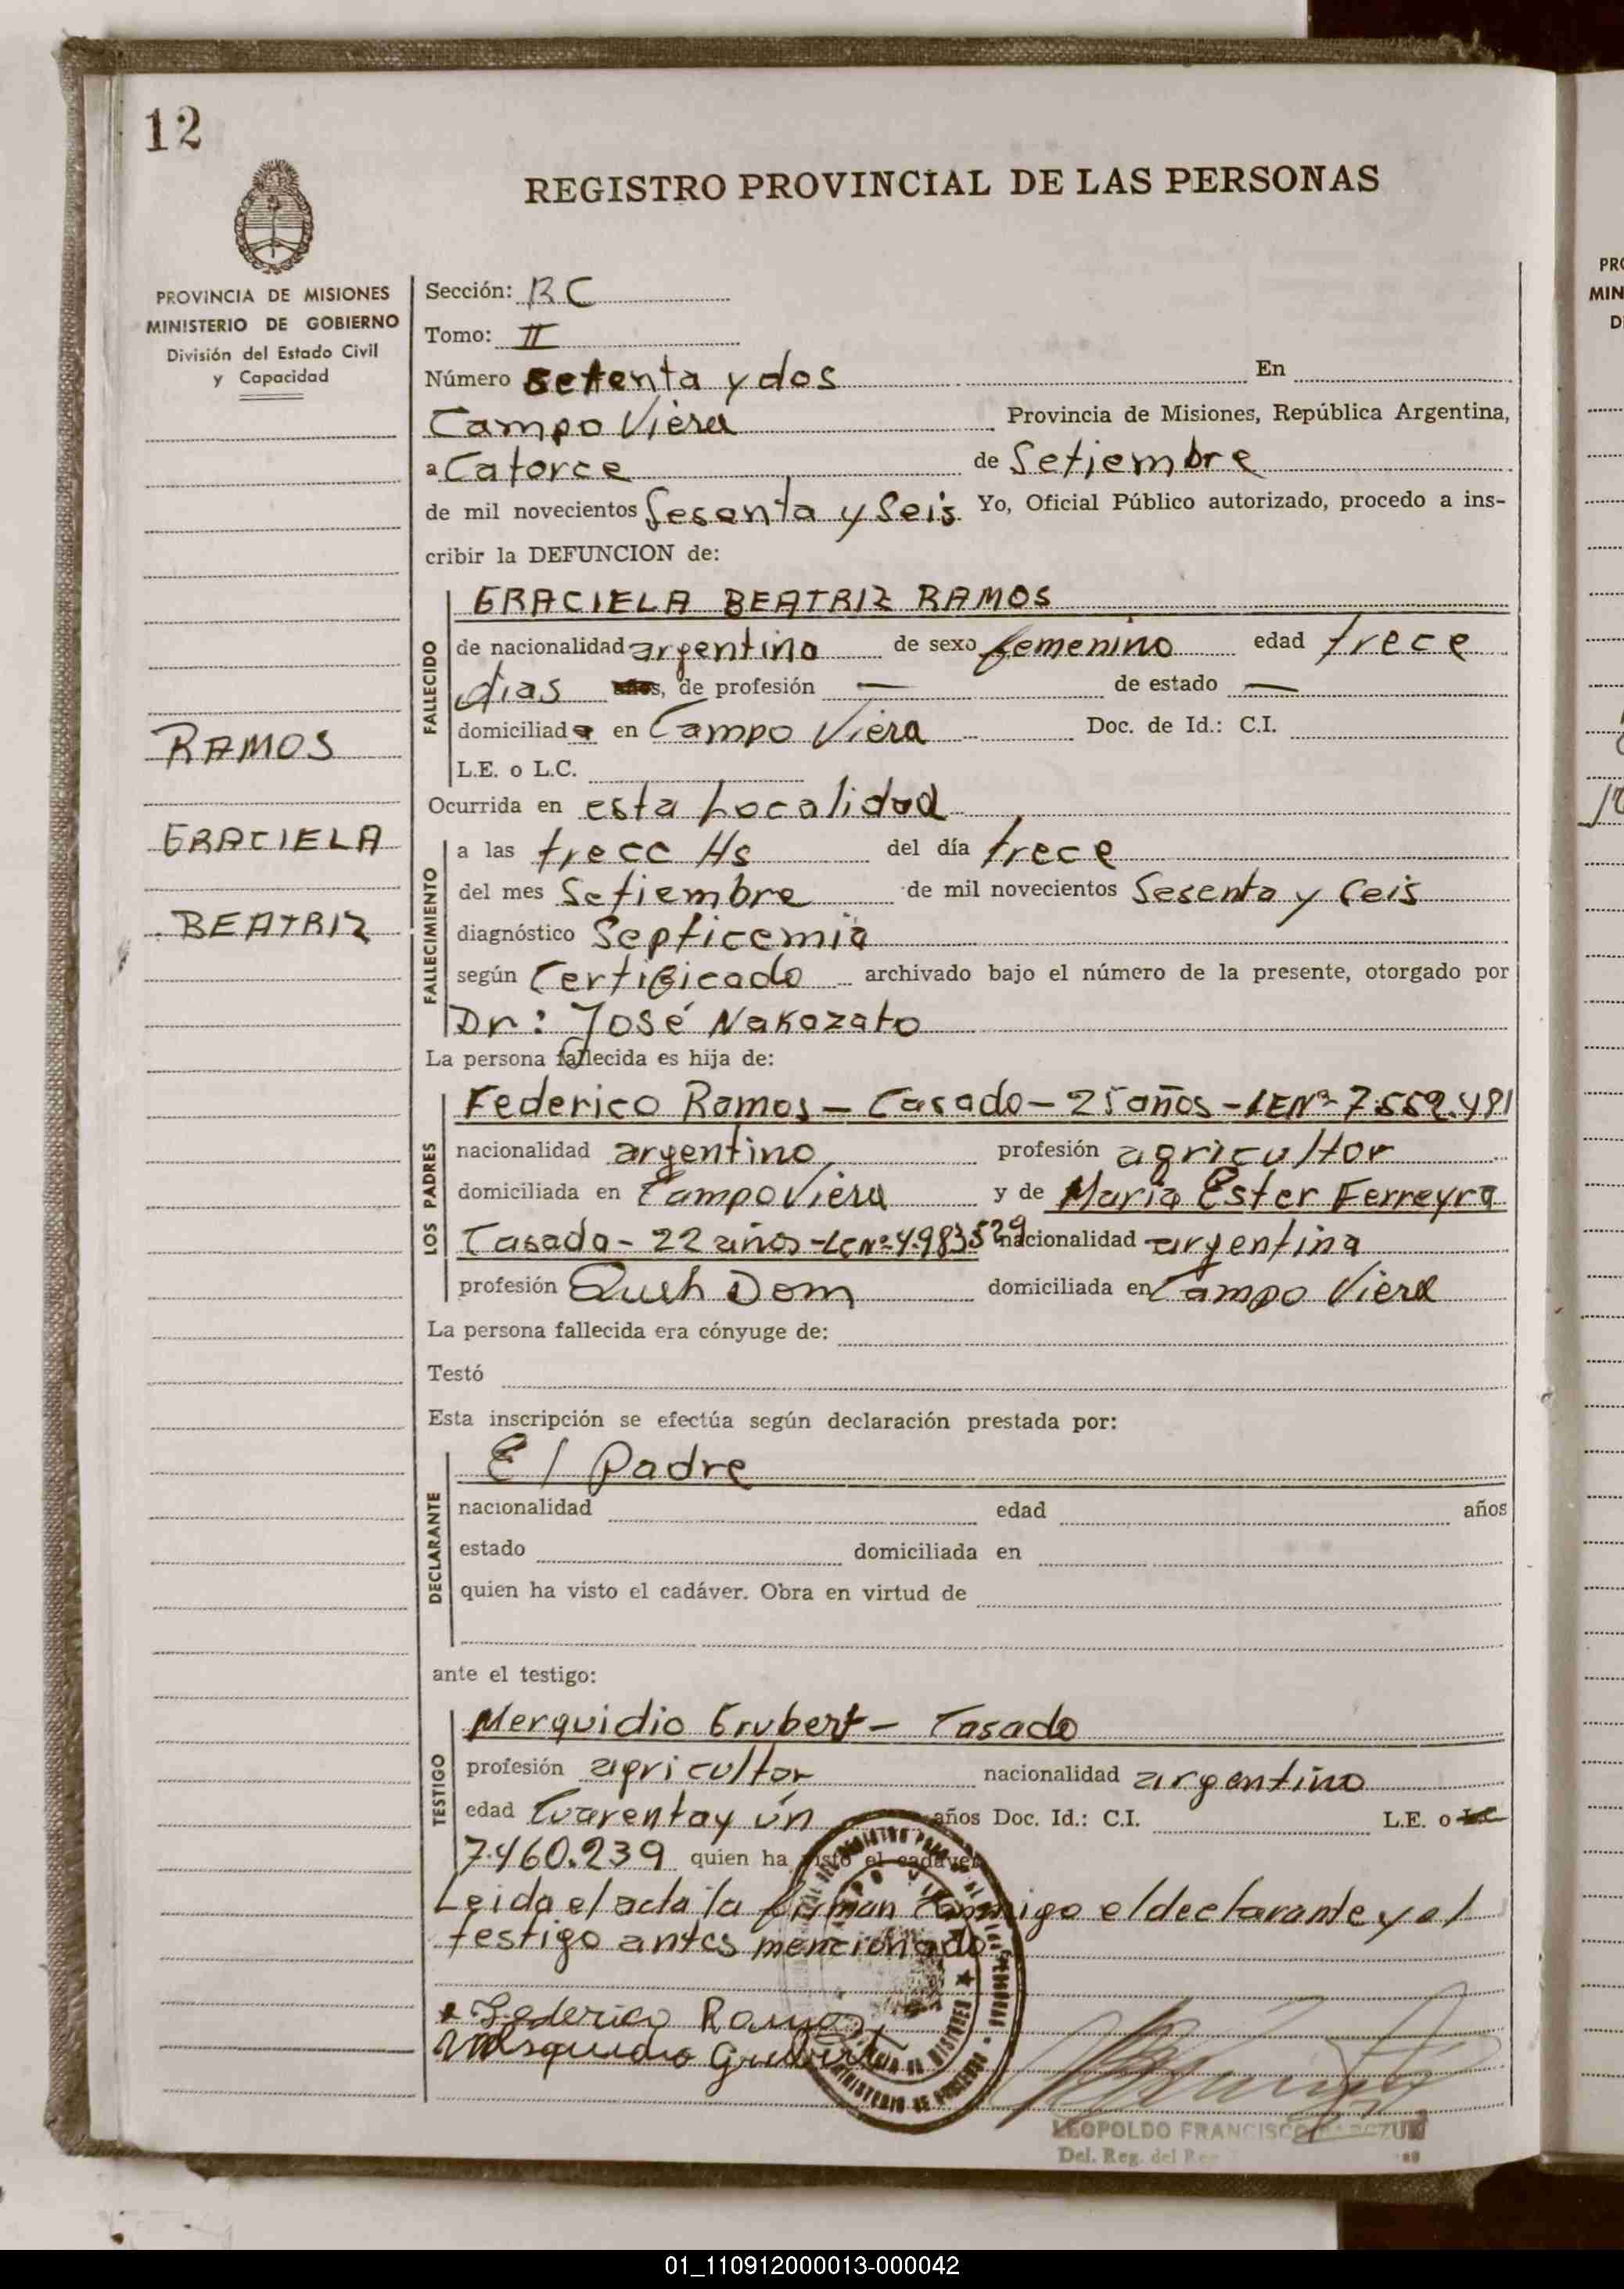 12
REGISTRO PROVINCIAL DE LAS PERSONAS
PROVINCIA DE MISIONES
MINISTERIO DE GOBIERNO
División del Estado Civil
y Capacidad
RAMOS
GRACIELA
BEATRIZ
Sección: RC
Tomo: II
Número setenta y dos En
Campo Viera Provincia de Misiones, República Argentina,
a Catorce de Setiembre
de mil novecientos Sesenta y Seis Yo, Oficial Público autorizado, procedo a ins-
cribir la DEFUNCION de:
FALLECIDO
GRACIELA BEATRIZ RAMOS
de nacionalidad argentina de sexo femenino edad trece
dias años, de profesión — de estado —
domiciliada en Campo Viera Doc. de Id.: C.I.
L.E. o L.C.
Ocurrida en esta Localidad
FALLECIMIENTO
a las trece Hs del día trece
del mes Setiembre de mil novecientos Sesenta y Ceis
diagnóstico Septicemia
según Certificado archivado bajo el número de la presente, otorgado por
Dr: José Nakazato
La persona fallecida es hija de:
LOS PADRES
Federico Ramos — Casado — 25 años — LE Nº 7.559.481
nacionalidad argentino profesión agricultor
domiciliada en Campo Viera y de María Ester Ferreyra
Casada - 22 años - LC Nº 4.983.529 nacionalidad argentina
profesión Queh Dom domiciliada en Campo Viera
La persona fallecida era cónyuge de:
Testó
Esta inscripción se efectúa según declaración prestada por:
DECLARANTE
El Padre
nacionalidad edad años
estado domiciliada en
quien ha visto el cadáver. Obra en virtud de
ante el testigo:
TESTIGO
Merquidio Grubert — Casado
profesión agricultor nacionalidad argentino
edad Cuarenta y ún años Doc. Id.: C.I. L.E. o L.C.
7.460.239 quien ha visto el cadáver
Leida el acta la firman conmigo el declarante y el
testigo antes mencionado
Federico Ramos
Merquidio Grubert
LEOPOLDO FRANCISCO
Del. Reg. del Re
PRO
MIN
D
01_110912000013-000042